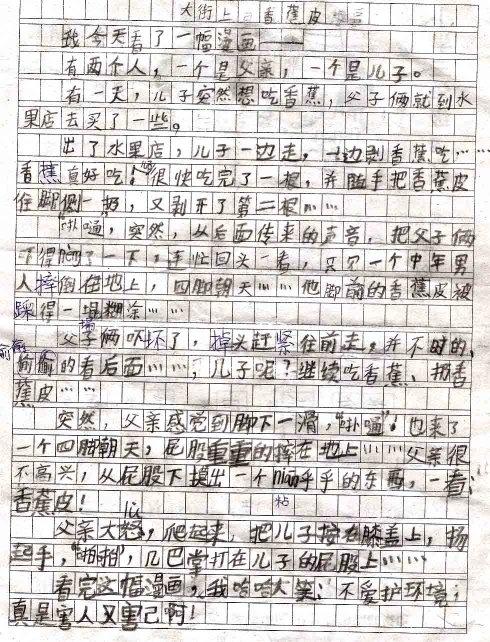 大街上 香蕉皮
我今天看了一幅漫画——
有两个人，一个是父亲，一个是儿子。
有一天，儿子突然想吃香蕉，父子俩就到水
果店去买了一些。
出了水果店，儿子一边走，一边剥香蕉吃……
香蕉真好吃！很快吃完了一根，并随手把香蕉皮
往脚侧一扔，又剥开了第二根……
“扑嗵”，突然，从后面传来的声音，把父子俩
下得了一下，连忙回头一看，只见一个中年男
人摔倒在地上，四脚朝天……他脚前的香蕉皮被
踩得一塌糊涂……
父子俩吓坏了，掉头赶紧往前走，并不时的、
偷偷的看后面……，儿子呢？继续吃香蕉、扔香
蕉皮……
突然，父亲感觉到脚下一滑，“扑嗵”！也来了
一个四脚朝天，屁股重重的摔在地上……父亲很
不高兴，从屁股下摸出一个nián乎乎的东西，一看；
粘
香蕉皮！
父亲大怒，爬起来，把儿子按在膝盖上，扬
起手，“啪啪”，几巴掌打在儿子的屁股上……
看完这幅漫画，我哈哈大笑；不爱护环境；
真是害人又害己啊！